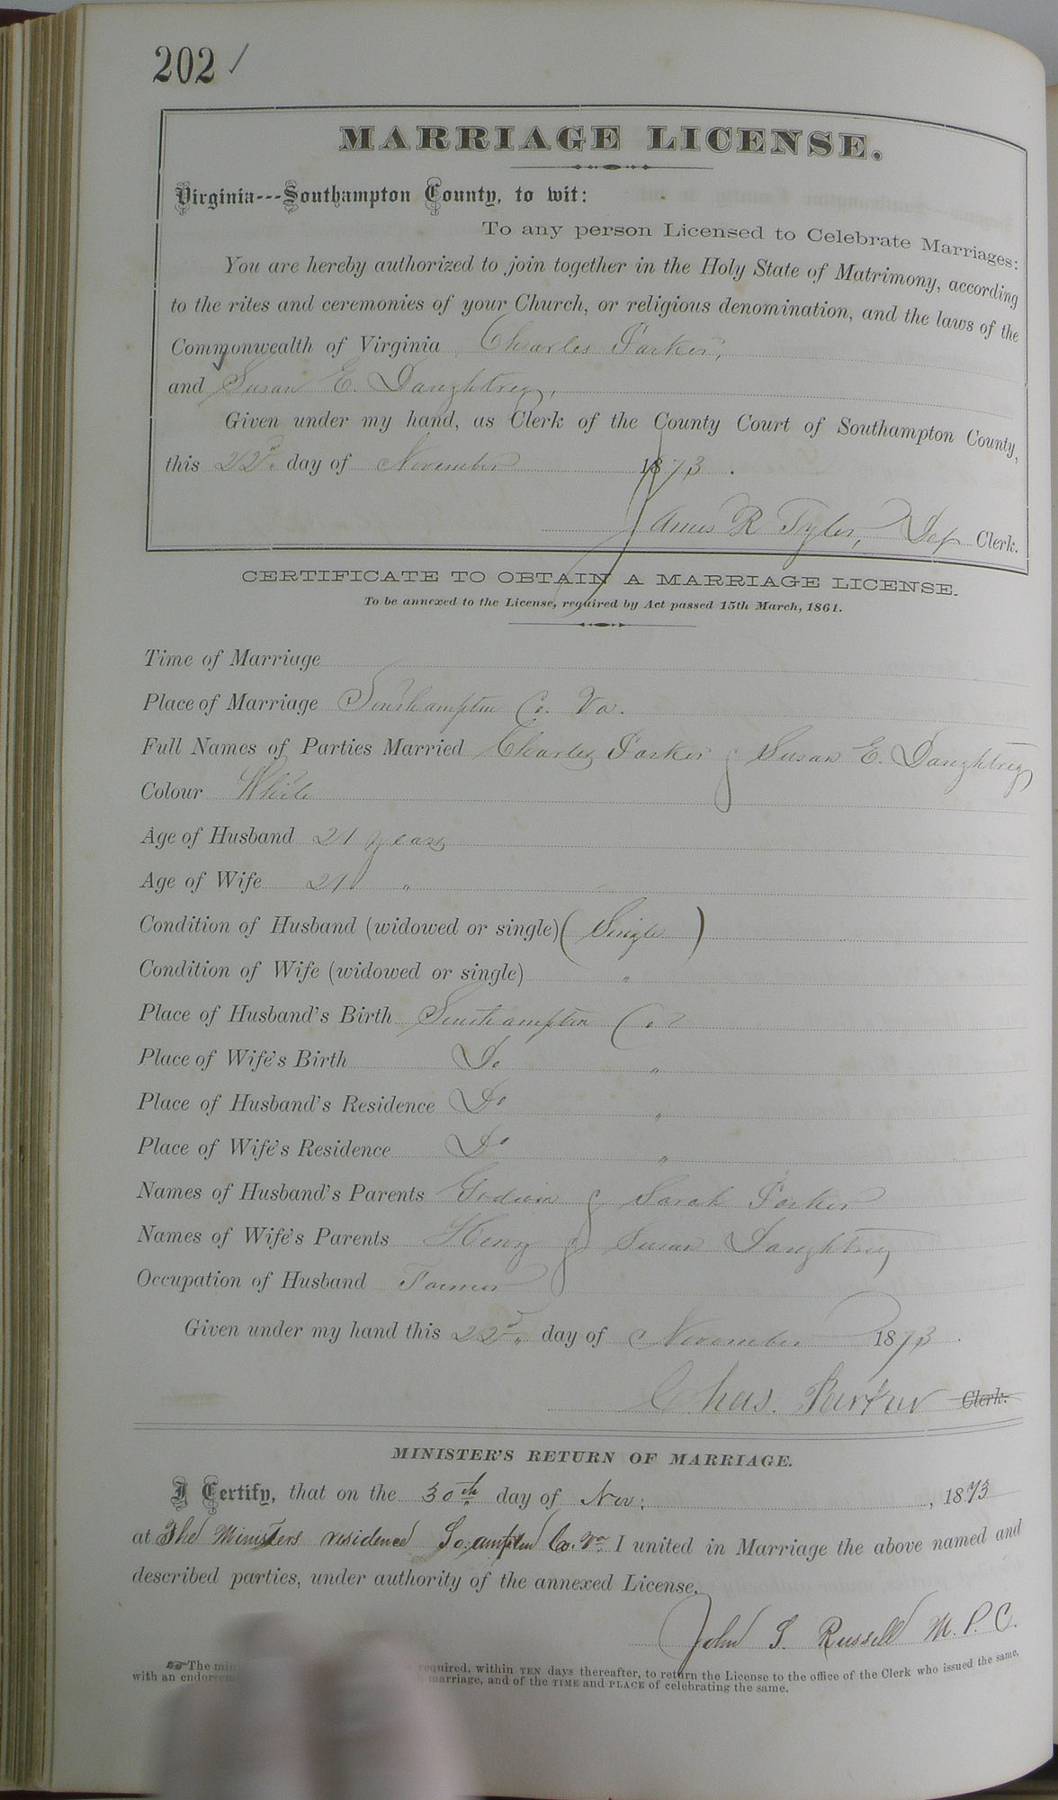 202 /
MARRIAGE LICENSE.
Virginia---Southampton County, to wit:
To any person Licensed to Celebrate Marriages:
You are hereby authorized to join together in the Holy State of Matrimony, according
to the rites and ceremonies of your Church, or religious denomination, and the laws of the
Commonwealth of Virginia Charles Parker,
and Susan E. Daughtrey,
Given under my hand, as Clerk of the County Court of Southampton County,
this 22d. day of November 1873.
James R Tyler, Dep Clerk.
CERTIFICATE TO OBTAIN A MARRIAGE LICENSE.
To be annexed to the License, required by Act passed 15th March, 1861.
Time of Marriage
Place of Marriage Southampton Co. Va.
Full Names of Parties Married Charles Parker & Susan E. Daughtrey
Colour White
Age of Husband 21 years
Age of Wife 21 "
Condition of Husband (widowed or single) (Single)
Condition of Wife (widowed or single) "
Place of Husband's Birth Southampton Co
Place of Wife's Birth Do "
Place of Husband's Residence Do "
Place of Wife's Residence Do "
Names of Husband's Parents Godwin & Sarah Parker
Names of Wife's Parents Henry & Susan Daughtrey
Occupation of Husband Farmer
Given under my hand this 22d. day of November 1873.
Chas. Parker Clerk.
MINISTER'S RETURN OF MARRIAGE.
I Certify, that on the 30th day of Nov: , 1873
at The Ministers residence So.ampton Co. Va I united in Marriage the above named and
described parties, under authority of the annexed License.
John S. Russell M. P. C.
The min required, within TEN days thereafter, to return the License to the office of the Clerk who issued the same,
with an endorsem marriage, and of the TIME and PLACE of celebrating the same.